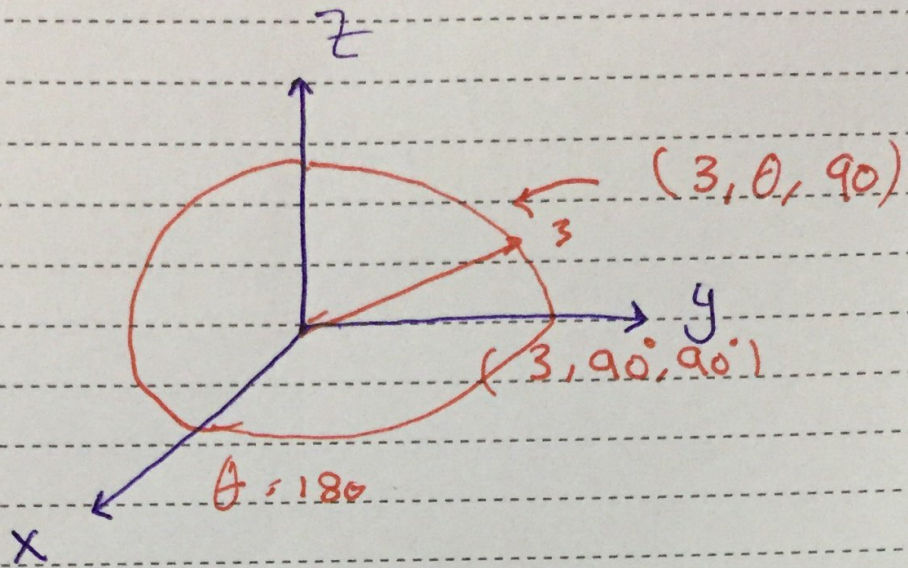 z
(3, θ, 90)
3
y
(3, 90°, 90°)
θ = 180
x